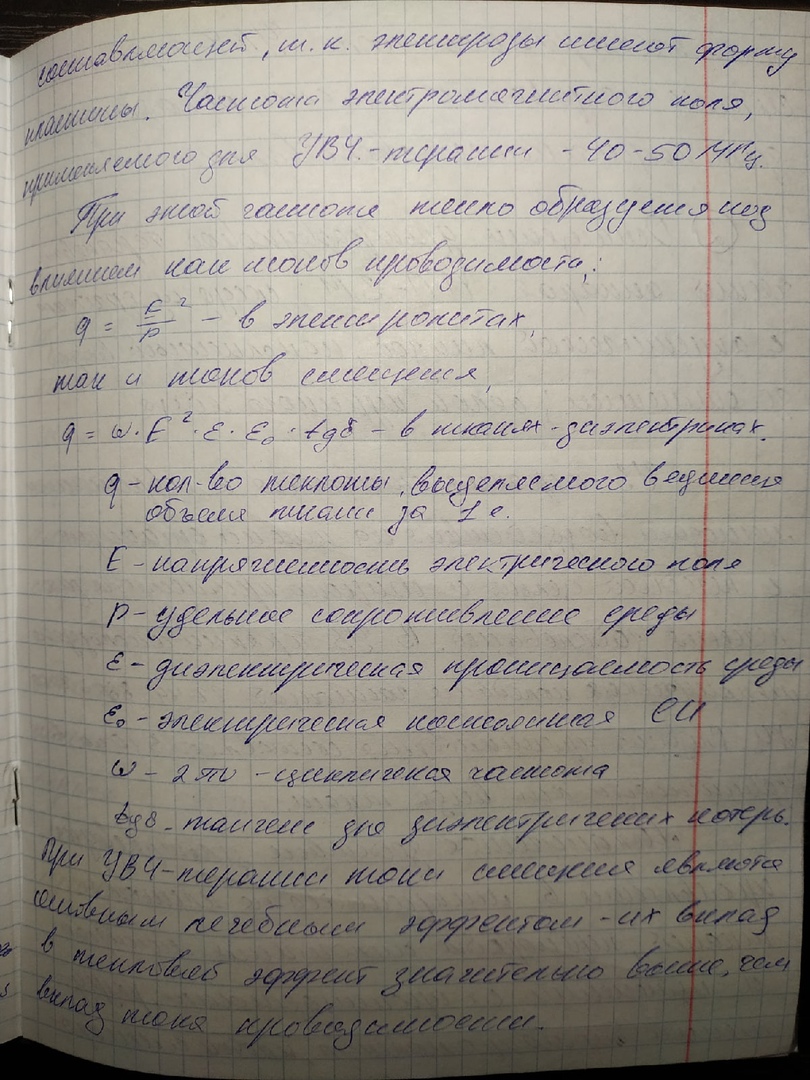 составляющей, т.к. электроды имеют форму
пластины. Частота электромагнитного поля,
применяемого для УВЧ-терапии - 40-50 МГц.
При этой частоте тепло образуется под
влиянием как токов проводимости,:
q = E²/ρ - в электролитах,
так и токов смещения,
q = ω·E²·ε·ε₀·tgδ - в тканях-диэлектриках.
q - кол-во теплоты, выделяемого в единице
объёма ткани за 1 с.
E - напряженность электрического поля
ρ - удельное сопротивление среды
ε - диэлектрическая проницаемость среды
ε₀ - электрическая постоянная СИ
ω - 2πν - циклическая частота
tgδ - тангенс для диэлектрических потерь.
При УВЧ-терапии токи смещения являются
основным лечебным эффектом - их вклад
в тепловой эффект значительно выше, чем
вклад тока проводимости.